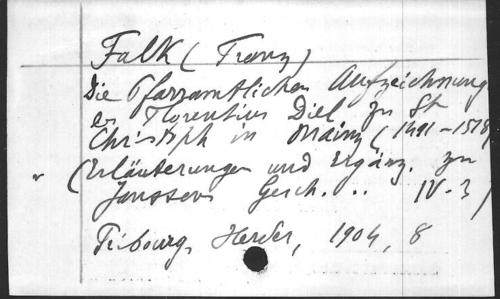 Falk (Franz)
Die Pfarramtlichen Aufzeichnung
en Florentius Diel zu St
Christoph in Mainz (1491-1518)
" (Erläuterungen und Ergänz. zu
Janssens Gesch... IV-3)
Fribourg, Herder, 1904, 8